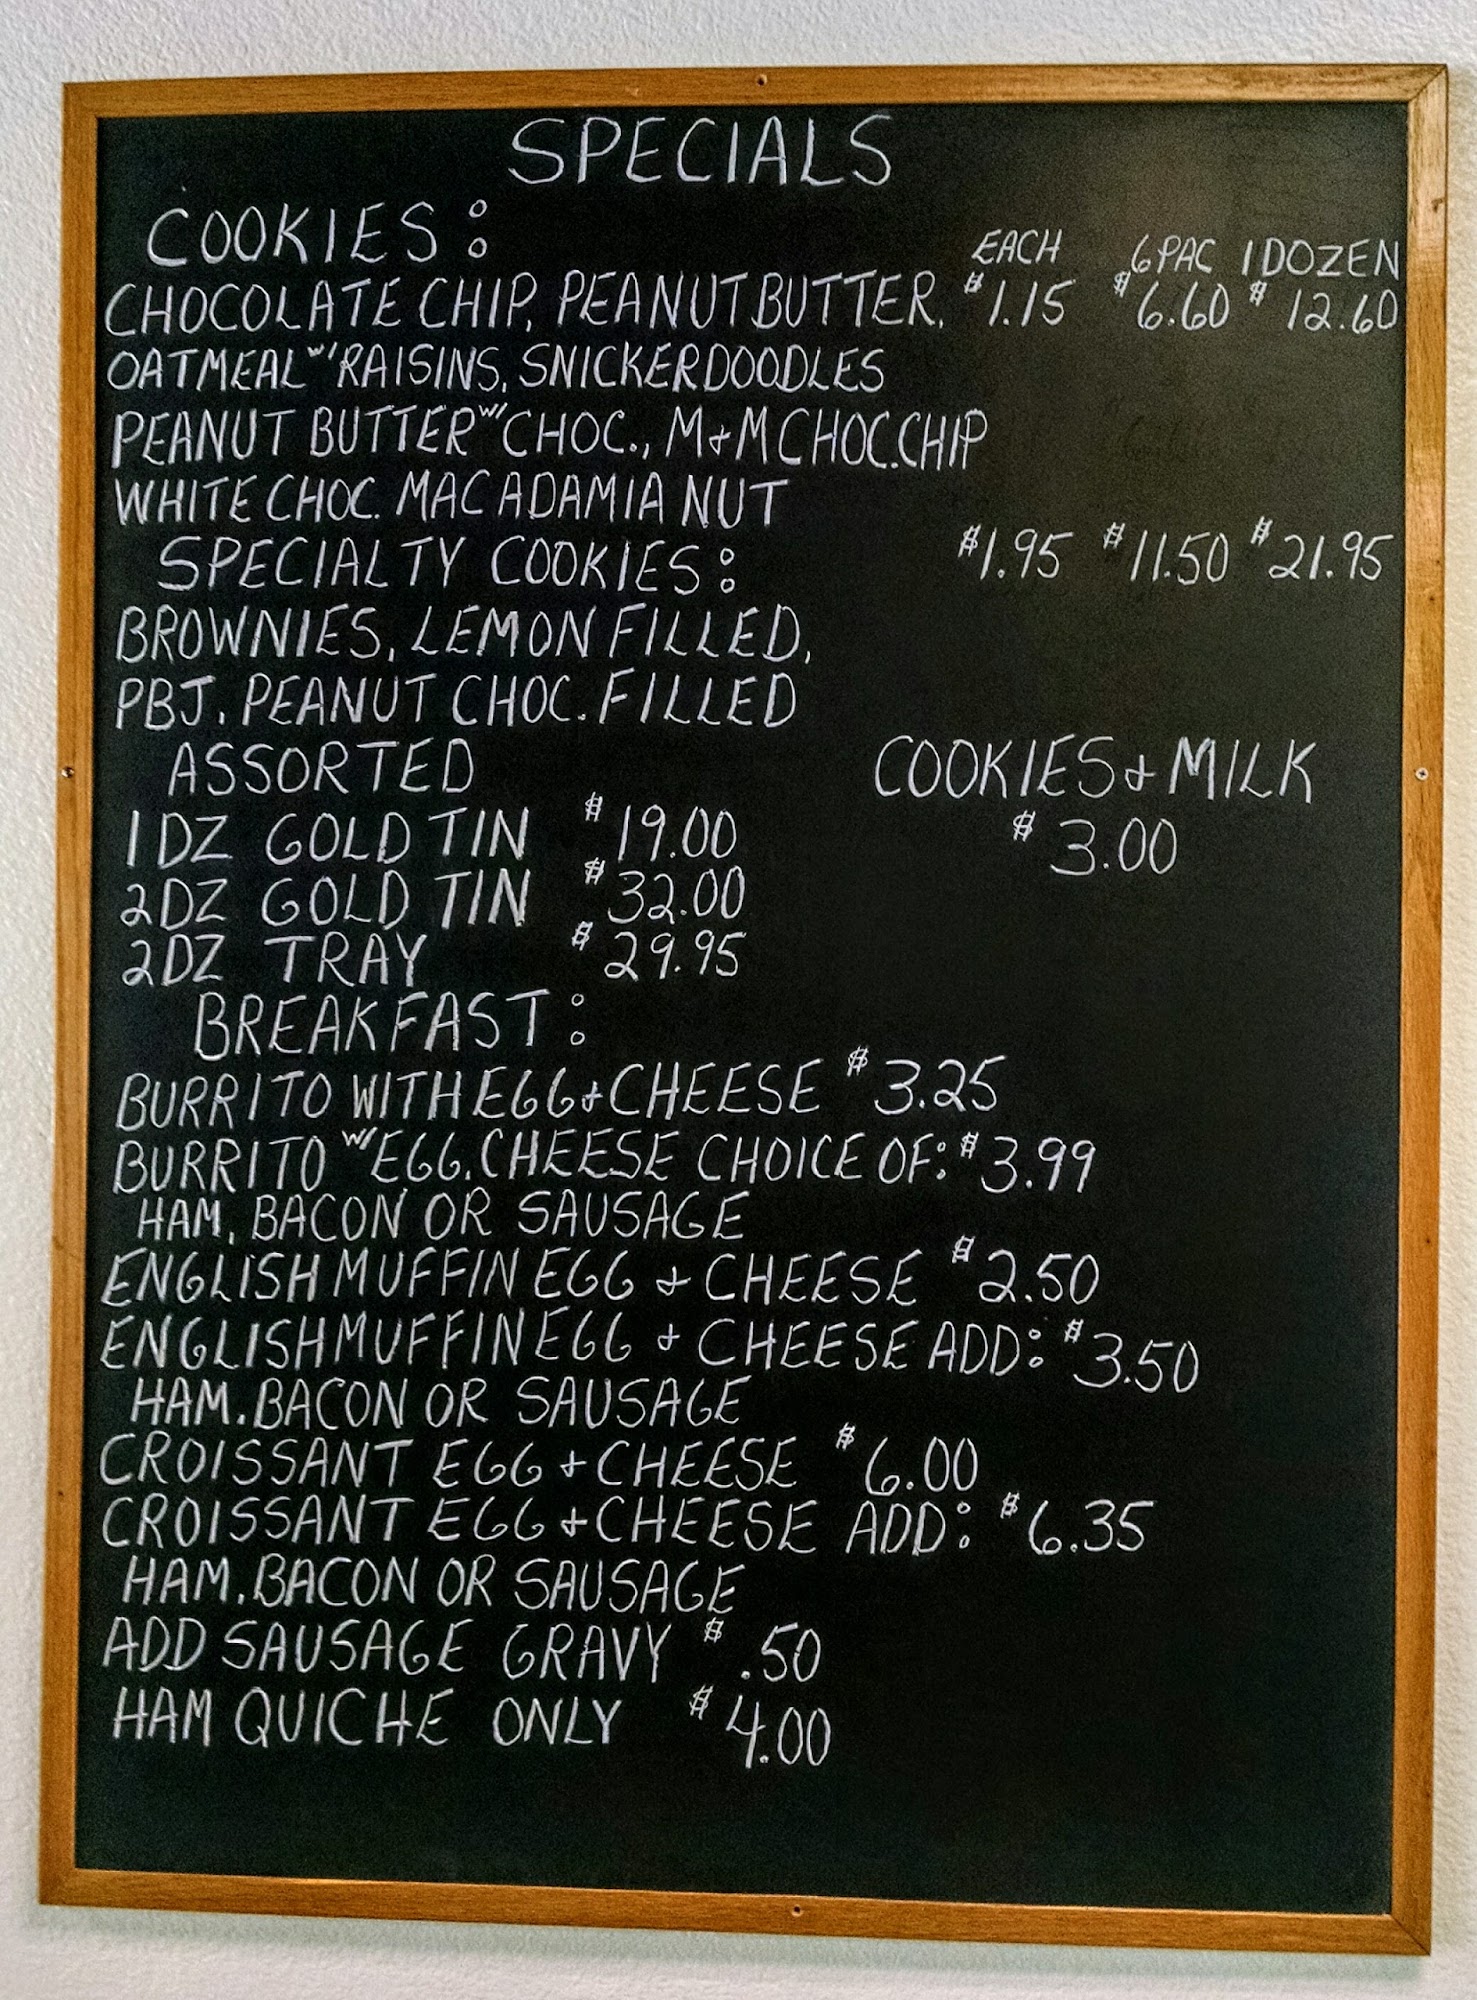 SPECIALS
COOKIES:
EACH 6PAC 1DOZEN
CHOCOLATE CHIP, PEANUT BUTTER, $1.15 $6.60 $12.60
OATMEAL w/ RAISINS, SNICKERDOODLES
PEANUT BUTTER w/ CHOC., M&M CHOC.CHIP
WHITE CHOC. MACADAMIA NUT
SPECIALTY COOKIES: $1.95 $11.50 $21.95
BROWNIES, LEMON FILLED,
PBJ, PEANUT CHOC. FILLED
ASSORTED
1DZ GOLD TIN $19.00
2DZ GOLD TIN $32.00
2DZ TRAY $29.95
COOKIES & MILK
$3.00
BREAKFAST:
BURRITO WITH EGG & CHEESE $3.25
BURRITO w/ EGG, CHEESE CHOICE OF: $3.99
HAM, BACON OR SAUSAGE
ENGLISH MUFFIN EGG & CHEESE $2.50
ENGLISH MUFFIN EGG & CHEESE ADD: $3.50
HAM, BACON OR SAUSAGE
CROISSANT EGG & CHEESE $6.00
CROISSANT EGG & CHEESE ADD: $6.35
HAM, BACON OR SAUSAGE
ADD SAUSAGE GRAVY $.50
HAM QUICHE ONLY $4.00